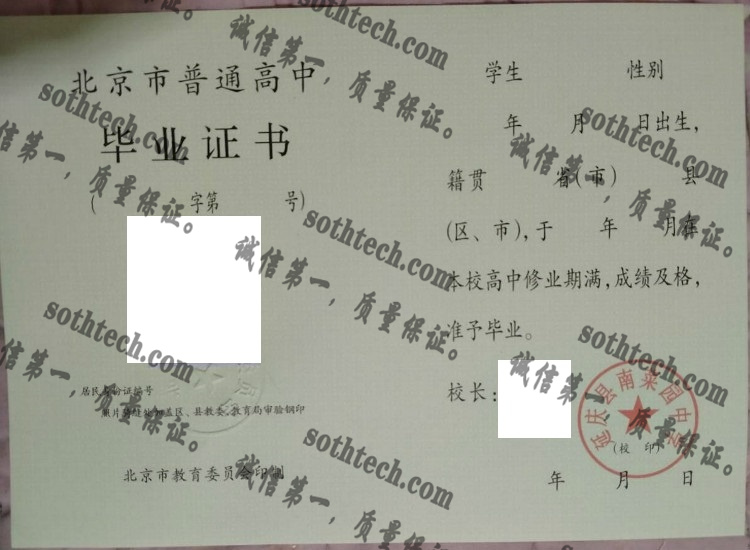 北京市普通高中
毕业证书
( 字第 号)
居民身份证编号
照片骑缝处加盖区、县教委、教育局审验钢印
北京市教育委员会印制
学生 性别
年 月 日出生,
籍贯 省(市) 县
(区、市),于 年 月在
本校高中修业期满,成绩及格,
准予毕业。
校长:
延庆县南菜园中学
(校 印)
年 月 日
sothtech.com
诚信第一,质量保证。
sothtech.com
诚信第一,质量保证。
sothtech.com
诚信第一,质量保证。
sothtech.com
诚信第一,质量保证。
sothtech.com
诚信第一,质量保证。
sothtech.com
诚信第一,质量保证。
sothtech.com
诚信第一,质量保证。